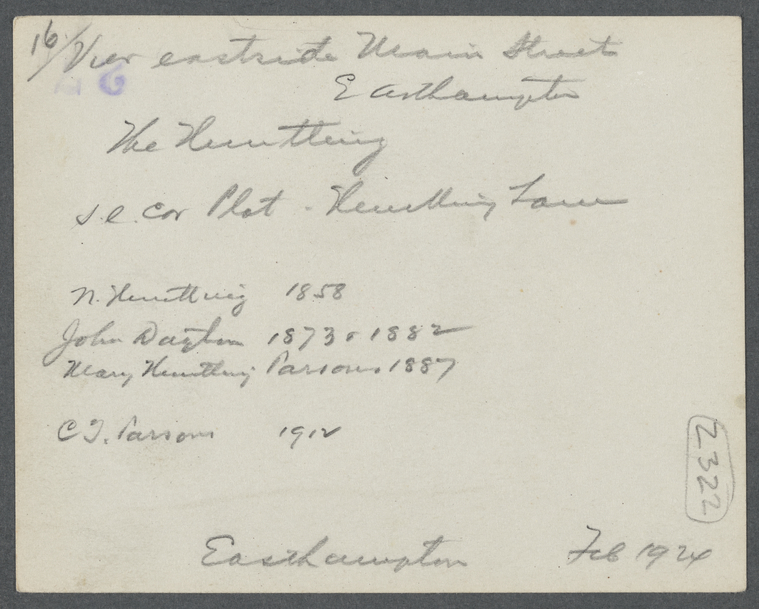 16/ View east side Main Street
26
Easthampton
The Huntting
s.e. cor Plot - Huntting Lane
N. Huntting 1858
John Dayton 1873 & 1882
Mary Huntting Parsons 1887
C T. Parsons 1912
2322
Easthampton Feb 1924